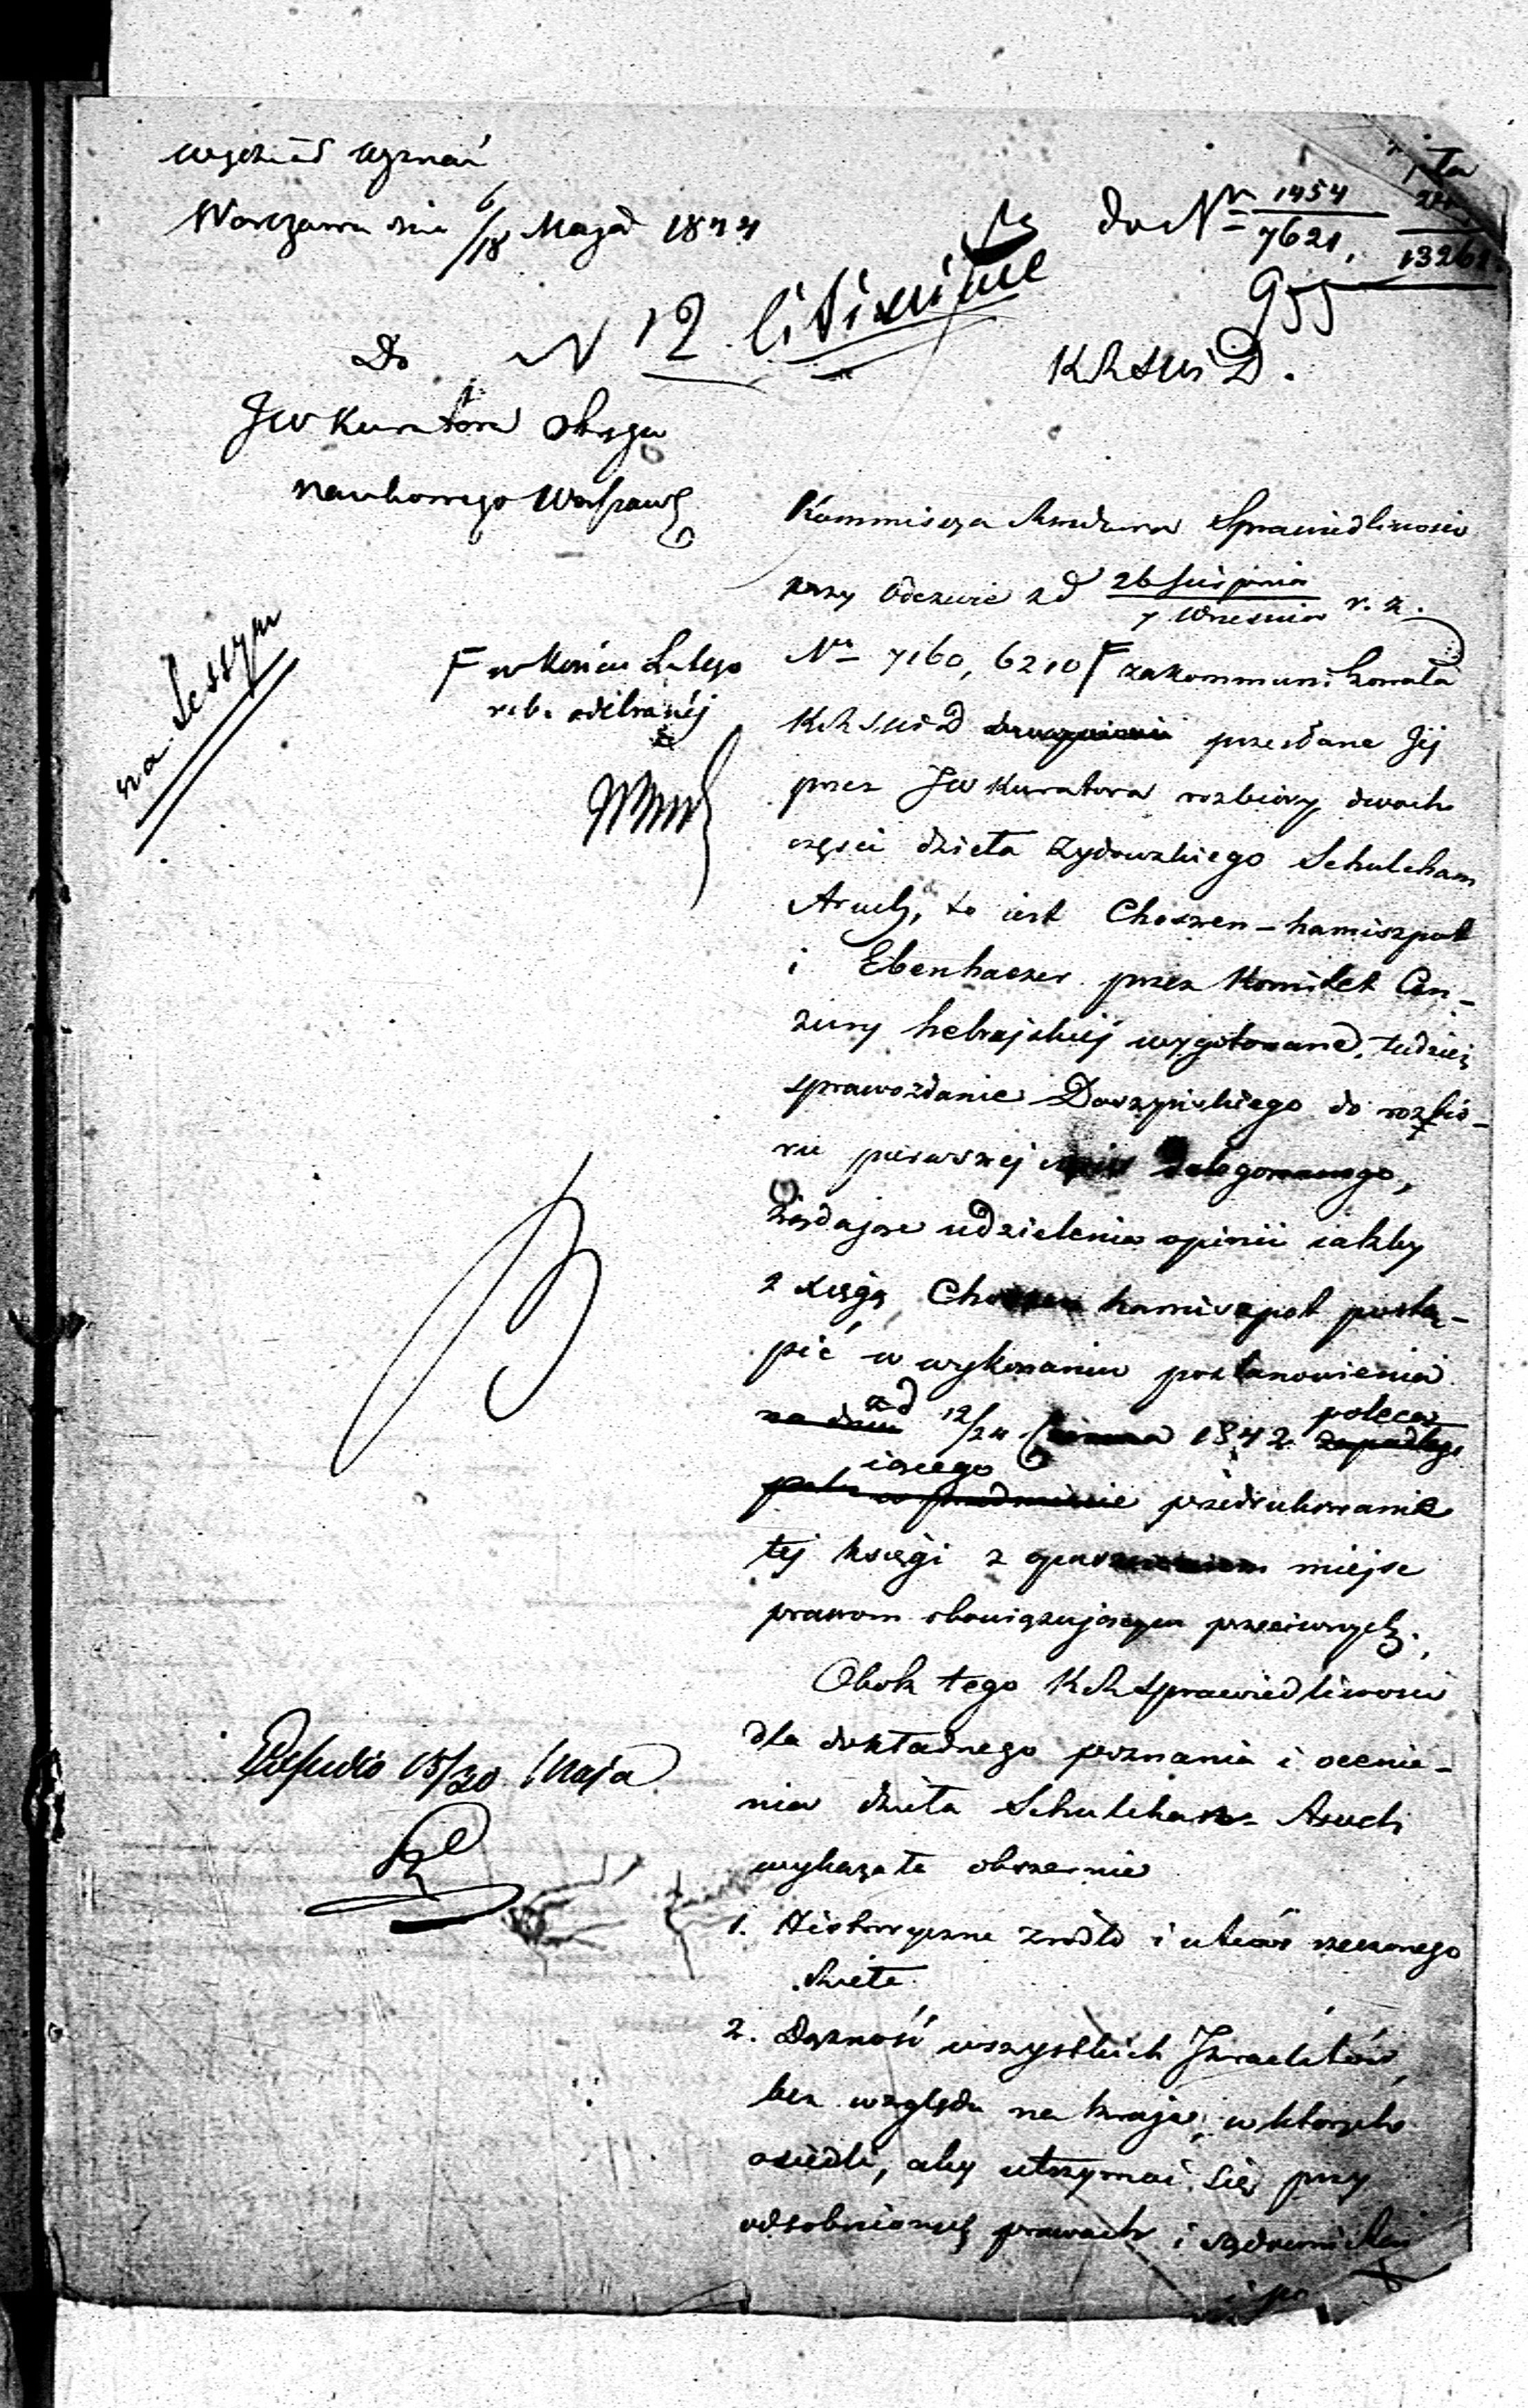 Wydział Wyznań
Warszawa dnia 6/18 Maja 1844
do Nr 1454
7621,
13261
955
N 12
Do
KRSWiD.
JW Kuratora Okręgu
Naukowego Warszaws
na Sessyą
Kommissya Rządowa Sprawiedliwości
przy Odezwie z d 26 Sierpnia
7 Września r. z.
Nr 7160, 6210 F zakommunikowała
F w końcu Lutego
r. b. odebranéj
KRSWiD przesłane Jéj
przez JW Kuratora rozbiory dwoch
części dzieła żydowskiego Schulcham
Aruch, to iest Choszen-hamiszpat
i Ebenhaezer przez Komitet Cen-
zury hebrajskiéj wygotowane, tudzież
sprawozdanie Doszyńskiego do rozbio-
ru pierwszej delegowanego,
żądając udzielenia opinii iakby
z księgą Choszen hamiszpat postą-
pić w wykonaniu postanowienia
z d 12/24 1842 poleca-
iącego przedrukowanie
téj księgi z opuszczeniem miejsc
prawom obowiązującym przeciwnych.
Obok tego KRSprawiedliwości
dla dokładnego poznania i ocenie-
nia dzieła Schulcham Aruch
wykazała obszernie
1. Historyczne zrodło i utwór rzeczonego
dzieła.
2. Dążność wszystkich Izraelitów
bez względu na kraje, w których
osiedli, aby utrzymać się przy
odsobnionych prawach i
15/30 Maja